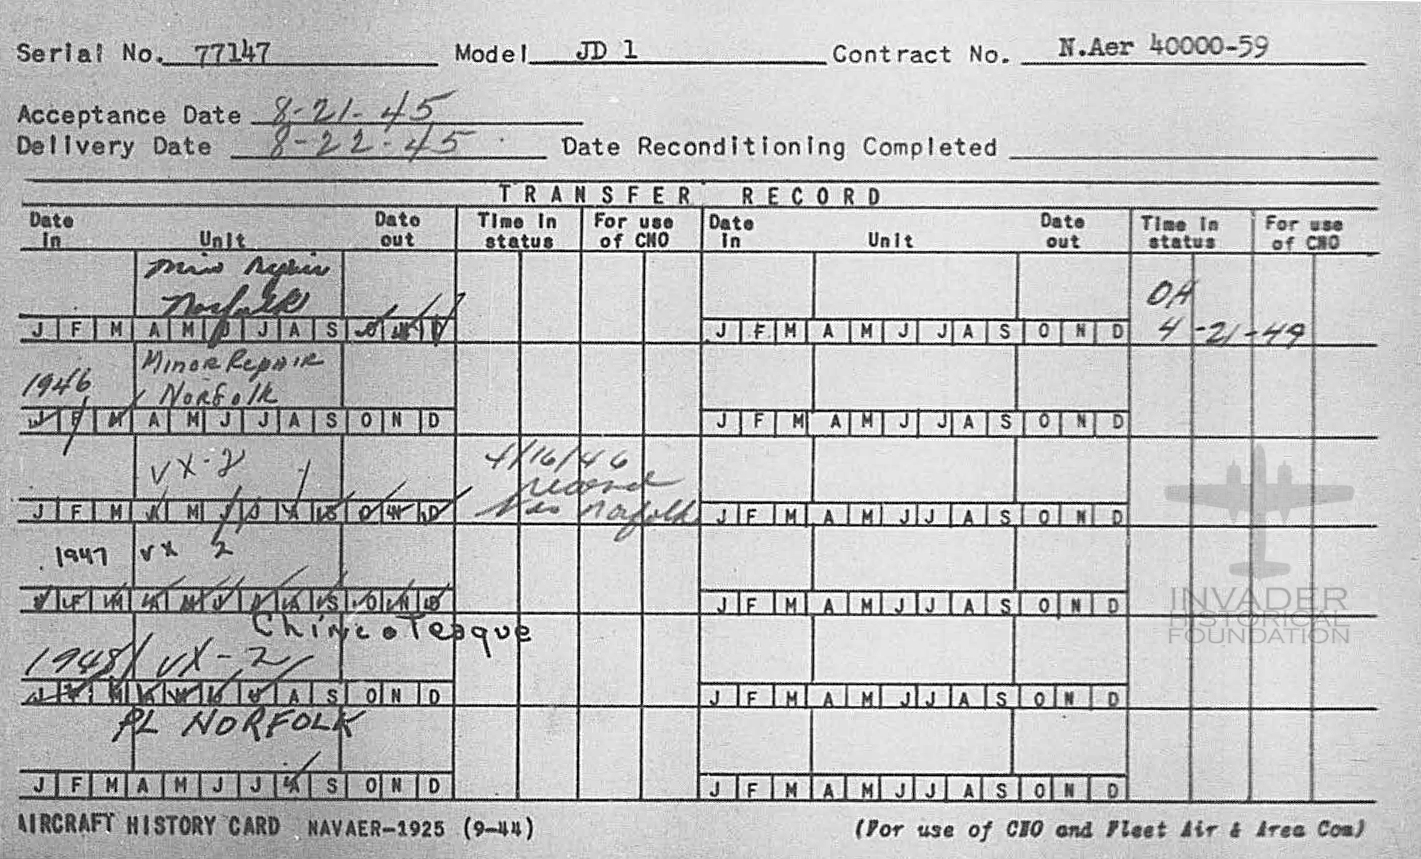 Serial No. 77147 Model JD 1 Contract No. N.Aer 40000-59
Acceptance Date 8-21-45
Delivery Date 8-22-45 Date Reconditioning Completed
TRANSFER RECORD
Date in Unit Date out Time in status For use of CNO Date in Unit Date out Time in status For use of CNO
Norfolk
OH
4-21-49
J F M A M J J A S O N D J F M A M J J A S O N D
Minor Repair
1946 Norfolk
J F M A M J J A S O N D J F M A M J J A S O N D
VX-2 4/16/46
record
Norfolk
J F M A M J J A S O N D J F M A M J J A S O N D
1947 VX 2
J F M A M J J A S O N D J F M A M J J A S O N D
Chincoteague
1948 VX-2
J F M A M J J A S O N D J F M A M J J A S O N D
PL NORFOLK
J F M A M J J A S O N D J F M A M J J A S O N D
INVADER
HISTORICAL
FOUNDATION
AIRCRAFT HISTORY CARD NAVAER-1925 (9-44) (For use of CNO and Fleet Air & Area Com)